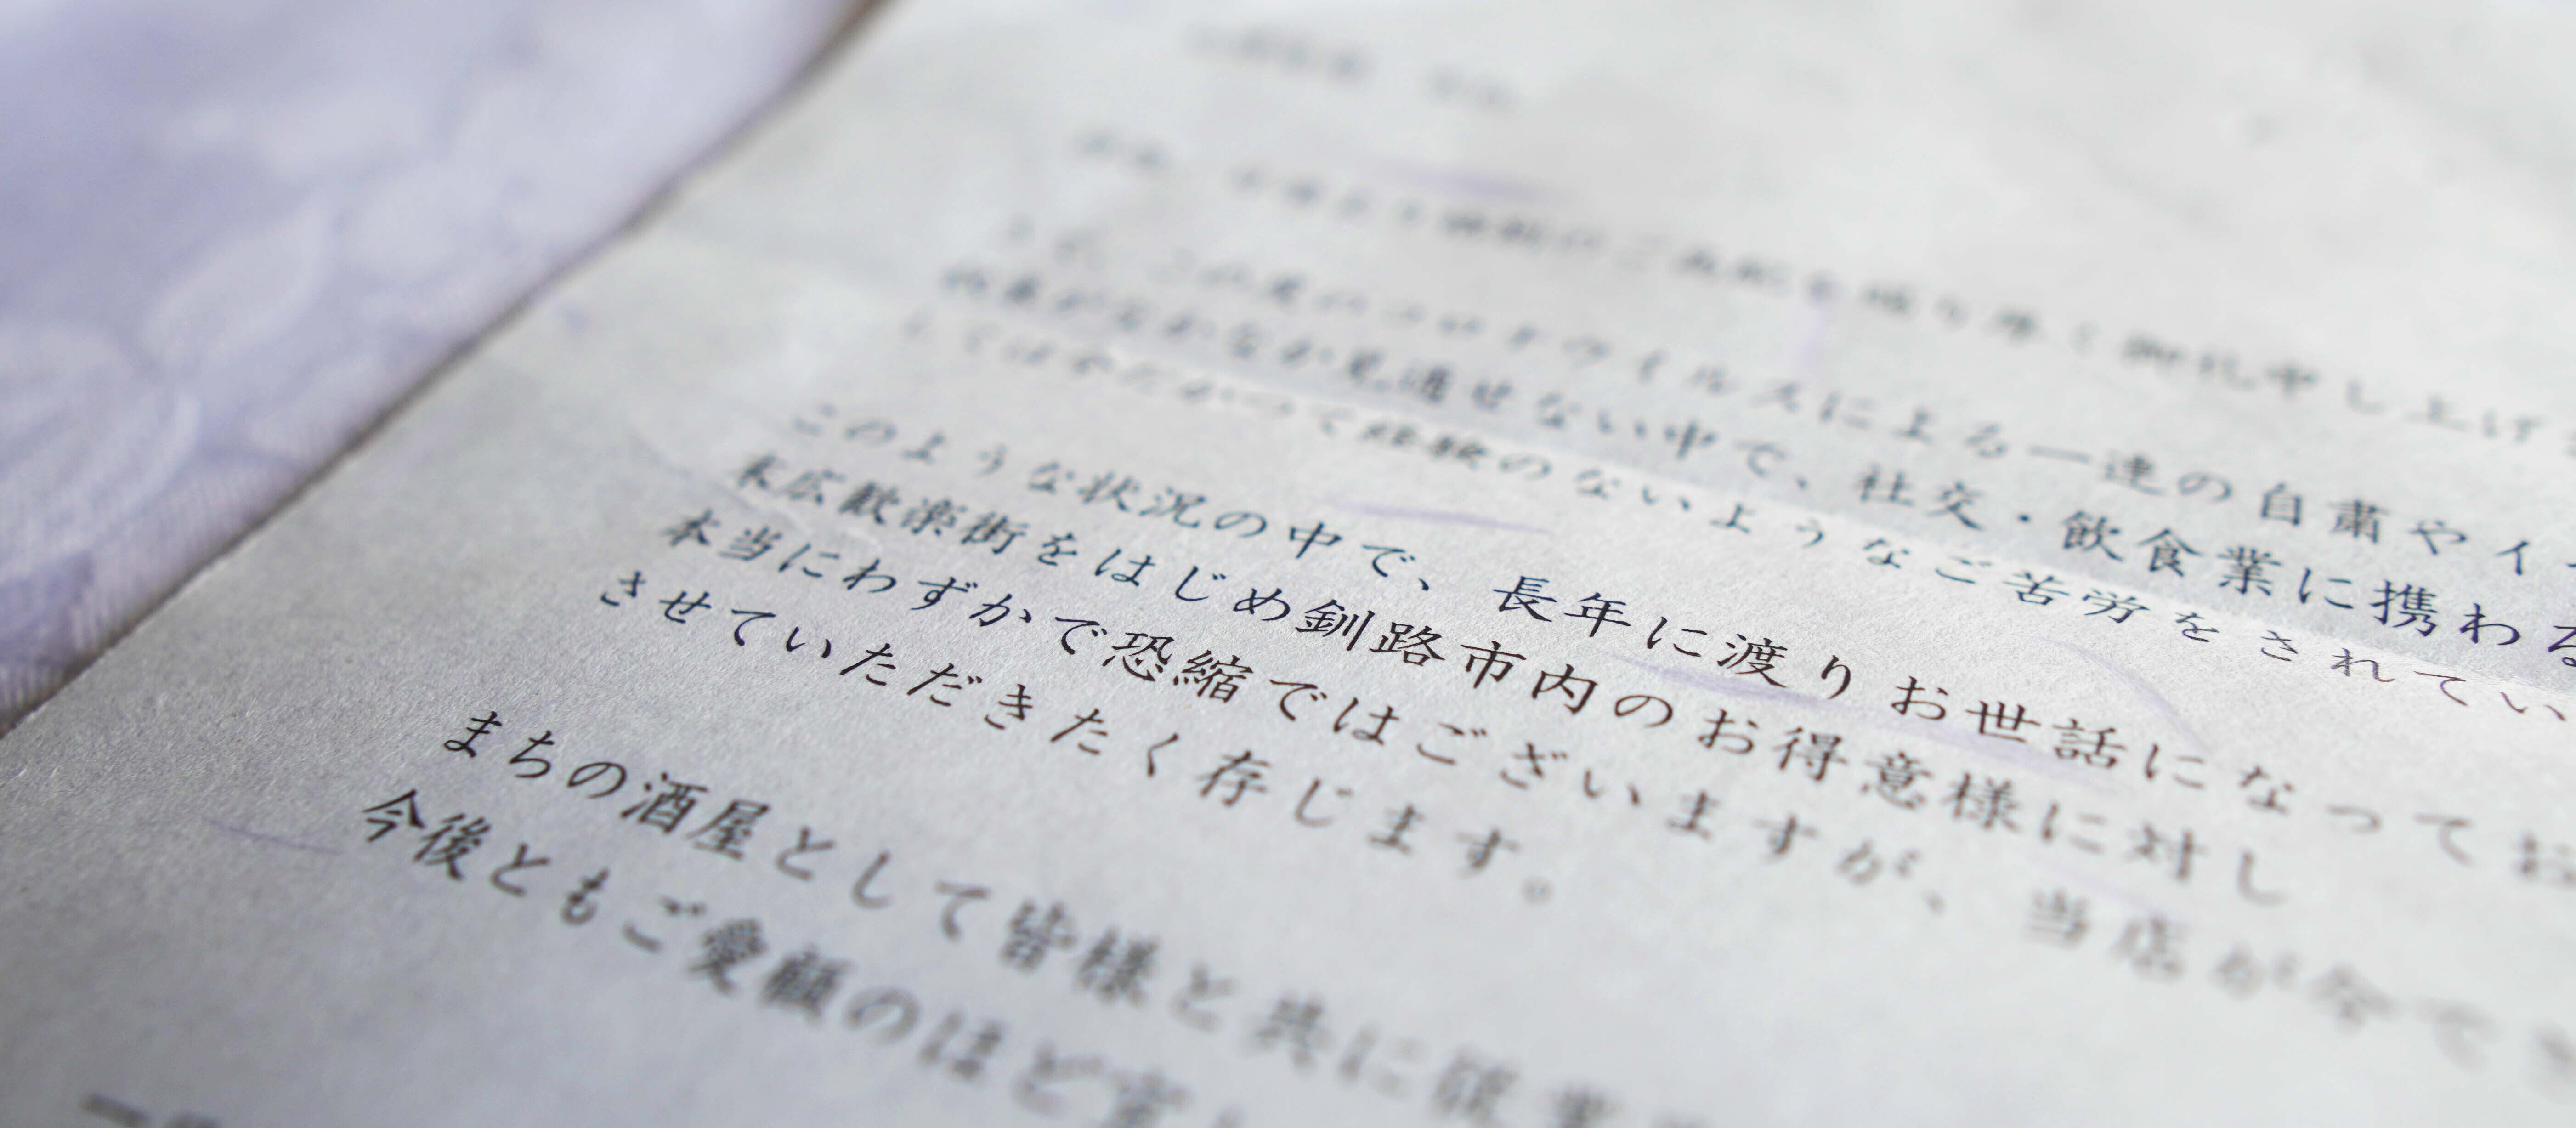 平素より格別のご高配を賜り厚く御礼申し上げ
さて、この度のコロナウイルスによる一連の自粛やイ
約束がなかなか見通せない中で、社交・飲食業に携わる
しては未だかつて経験のないようなご苦労をされてい
このような状況の中で、長年に渡りお世話になってお
末広歓楽街をはじめ釧路市内のお得意様に対し
本当にわずかで恐縮ではございますが、当店が今で
させていただきたく存じます。
まちの酒屋として皆様と共に
今後ともご愛顧のほど宜